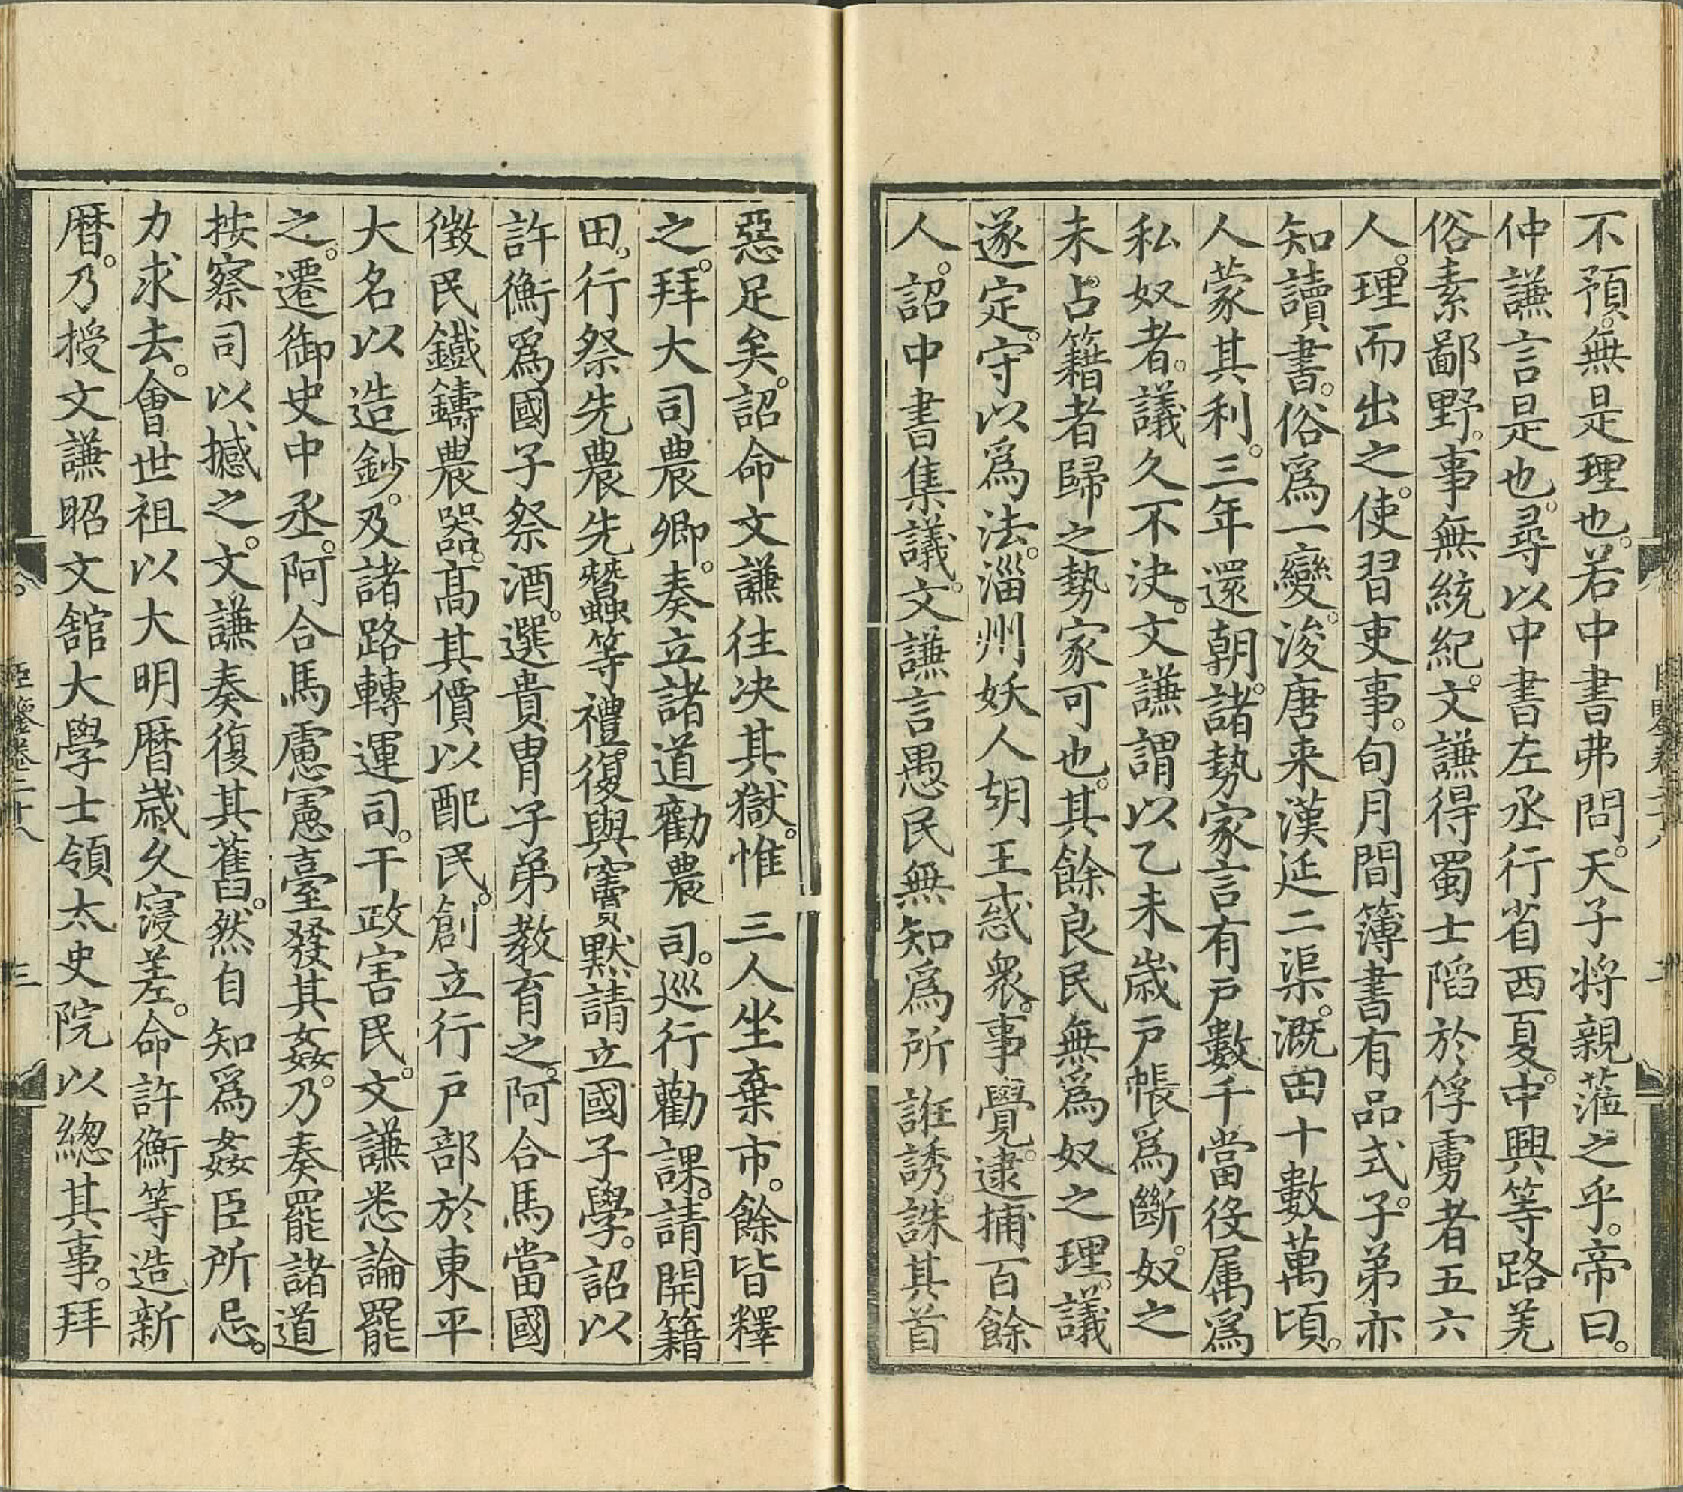 不預無是理也。若中書弗問。天子將親蒞之乎。帝曰。
仲謙言是也。尋以中書左丞行省西夏。中興等路羌
俗素鄙野。事無統紀。文謙得蜀士陷於俘虜者五六
人。理而出之。使習吏事。旬月間簿書有品式。子弟亦
知讀書。俗爲一變。浚唐来漢延二渠。溉田十數萬頃。
人蒙其利。三年還朝。諸勢家言有戶數千當役属爲
私奴者。議久不決。文謙謂以乙未歲戶帳爲斷。奴之
未占籍者歸之勢家可也。其餘良民無爲奴之理。議
遂定。守以爲法。淄州妖人胡王惑衆。事覺。逮捕百餘
人。詔中書集議。文謙言愚民無知爲所誑誘。誅其首
惡足矣。詔命文謙往決其獄。惟三人坐棄市。餘皆釋
之。拜大司農卿。奏立諸道勸農司。巡行勸課。請開籍
田。行祭先農先蠶等禮。復與竇默請立國子學。詔以
許衡爲國子祭酒。選貴胄子弟教育之。阿合馬當國
徵民鐵鑄農器。高其價以配民。創立行戶部於東平
大名以造鈔。及諸路轉運司。干政害民。文謙悉論罷
之。遷御史中丞。阿合馬慮憲臺發其姦。乃奏罷諸道
按察司以撼之。文謙奏復其舊。然自知爲姦臣所忌。
力求去。會世祖以大明曆歲久寖差。命許衡等造新
曆。乃授文謙昭文館大學士領太史院以總其事。拜